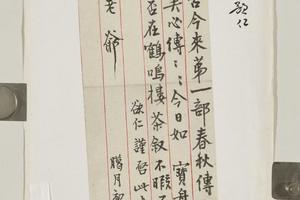 古今來第一部春秋傳
矣心傳〻今日如 寶舟
否在鶴鳴樓茶敘不暇
欲仁謹啓此
臘月
老爺
仁